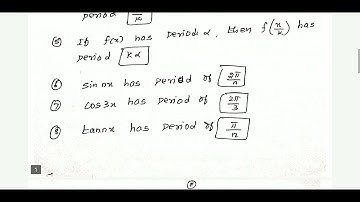 period π/n
⑤ If f(x) has period α, then f(x/k) has
period kα
⑥ sin nx has period of 2π/n
⑦ cos3x has period of 2π/3
⑧ tan nx has period of π/n
1